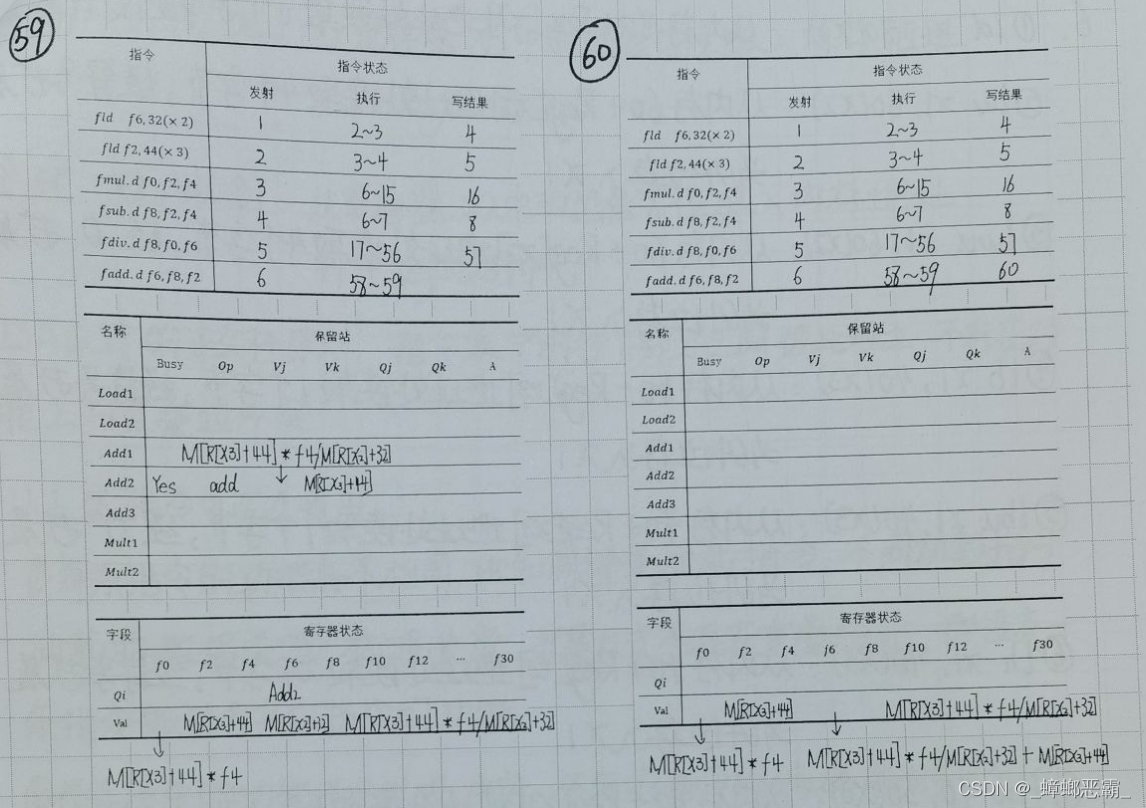 59
指令 指令状态
发射 执行 写结果
fld f6,32(×2) 1 2~3 4
fld f2,44(×3) 2 3~4 5
fmul.d f0,f2,f4 3 6~15 16
fsub.d f8,f2,f4 4 6~7 8
fdiv.d f8,f0,f6 5 17~56 57
fadd.d f6,f8,f2 6 58~59
名称 保留站
Busy Op Vj Vk Qj Qk A
Load1
Load2
Add1 M[R[X3]+44]*f4/M[R[X2]+32]
Add2 Yes add ↓ M[R[X3]+44]
Add3
Mult1
Mult2
字段 寄存器状态
f0 f2 f4 f6 f8 f10 f12 ... f30
Qi Add2
Val M[R[X3]+44] M[R[X2]+32] M[R[X3]+44]*f4/M[R[X2]+32]
↓
M[R[X3]+44]*f4
60
指令 指令状态
发射 执行 写结果
fld f6,32(×2) 1 2~3 4
fld f2,44(×3) 2 3~4 5
fmul.d f0,f2,f4 3 6~15 16
fsub.d f8,f2,f4 4 6~7 8
fdiv.d f8,f0,f6 5 17~56 57
fadd.d f6,f8,f2 6 58~59 60
名称 保留站
Busy Op Vj Vk Qj Qk A
Load1
Load2
Add1
Add2
Add3
Mult1
Mult2
字段 寄存器状态
f0 f2 f4 f6 f8 f10 f12 ... f30
Qi
Val M[R[X3]+44] M[R[X3]+44]*f4/M[R[X2]+32]
↓ ↓
M[R[X3]+44]*f4 M[R[X3]+44]*f4/M[R[X2]+32]+M[R[X3]+44]
CSDN @_蟑螂恶霸_